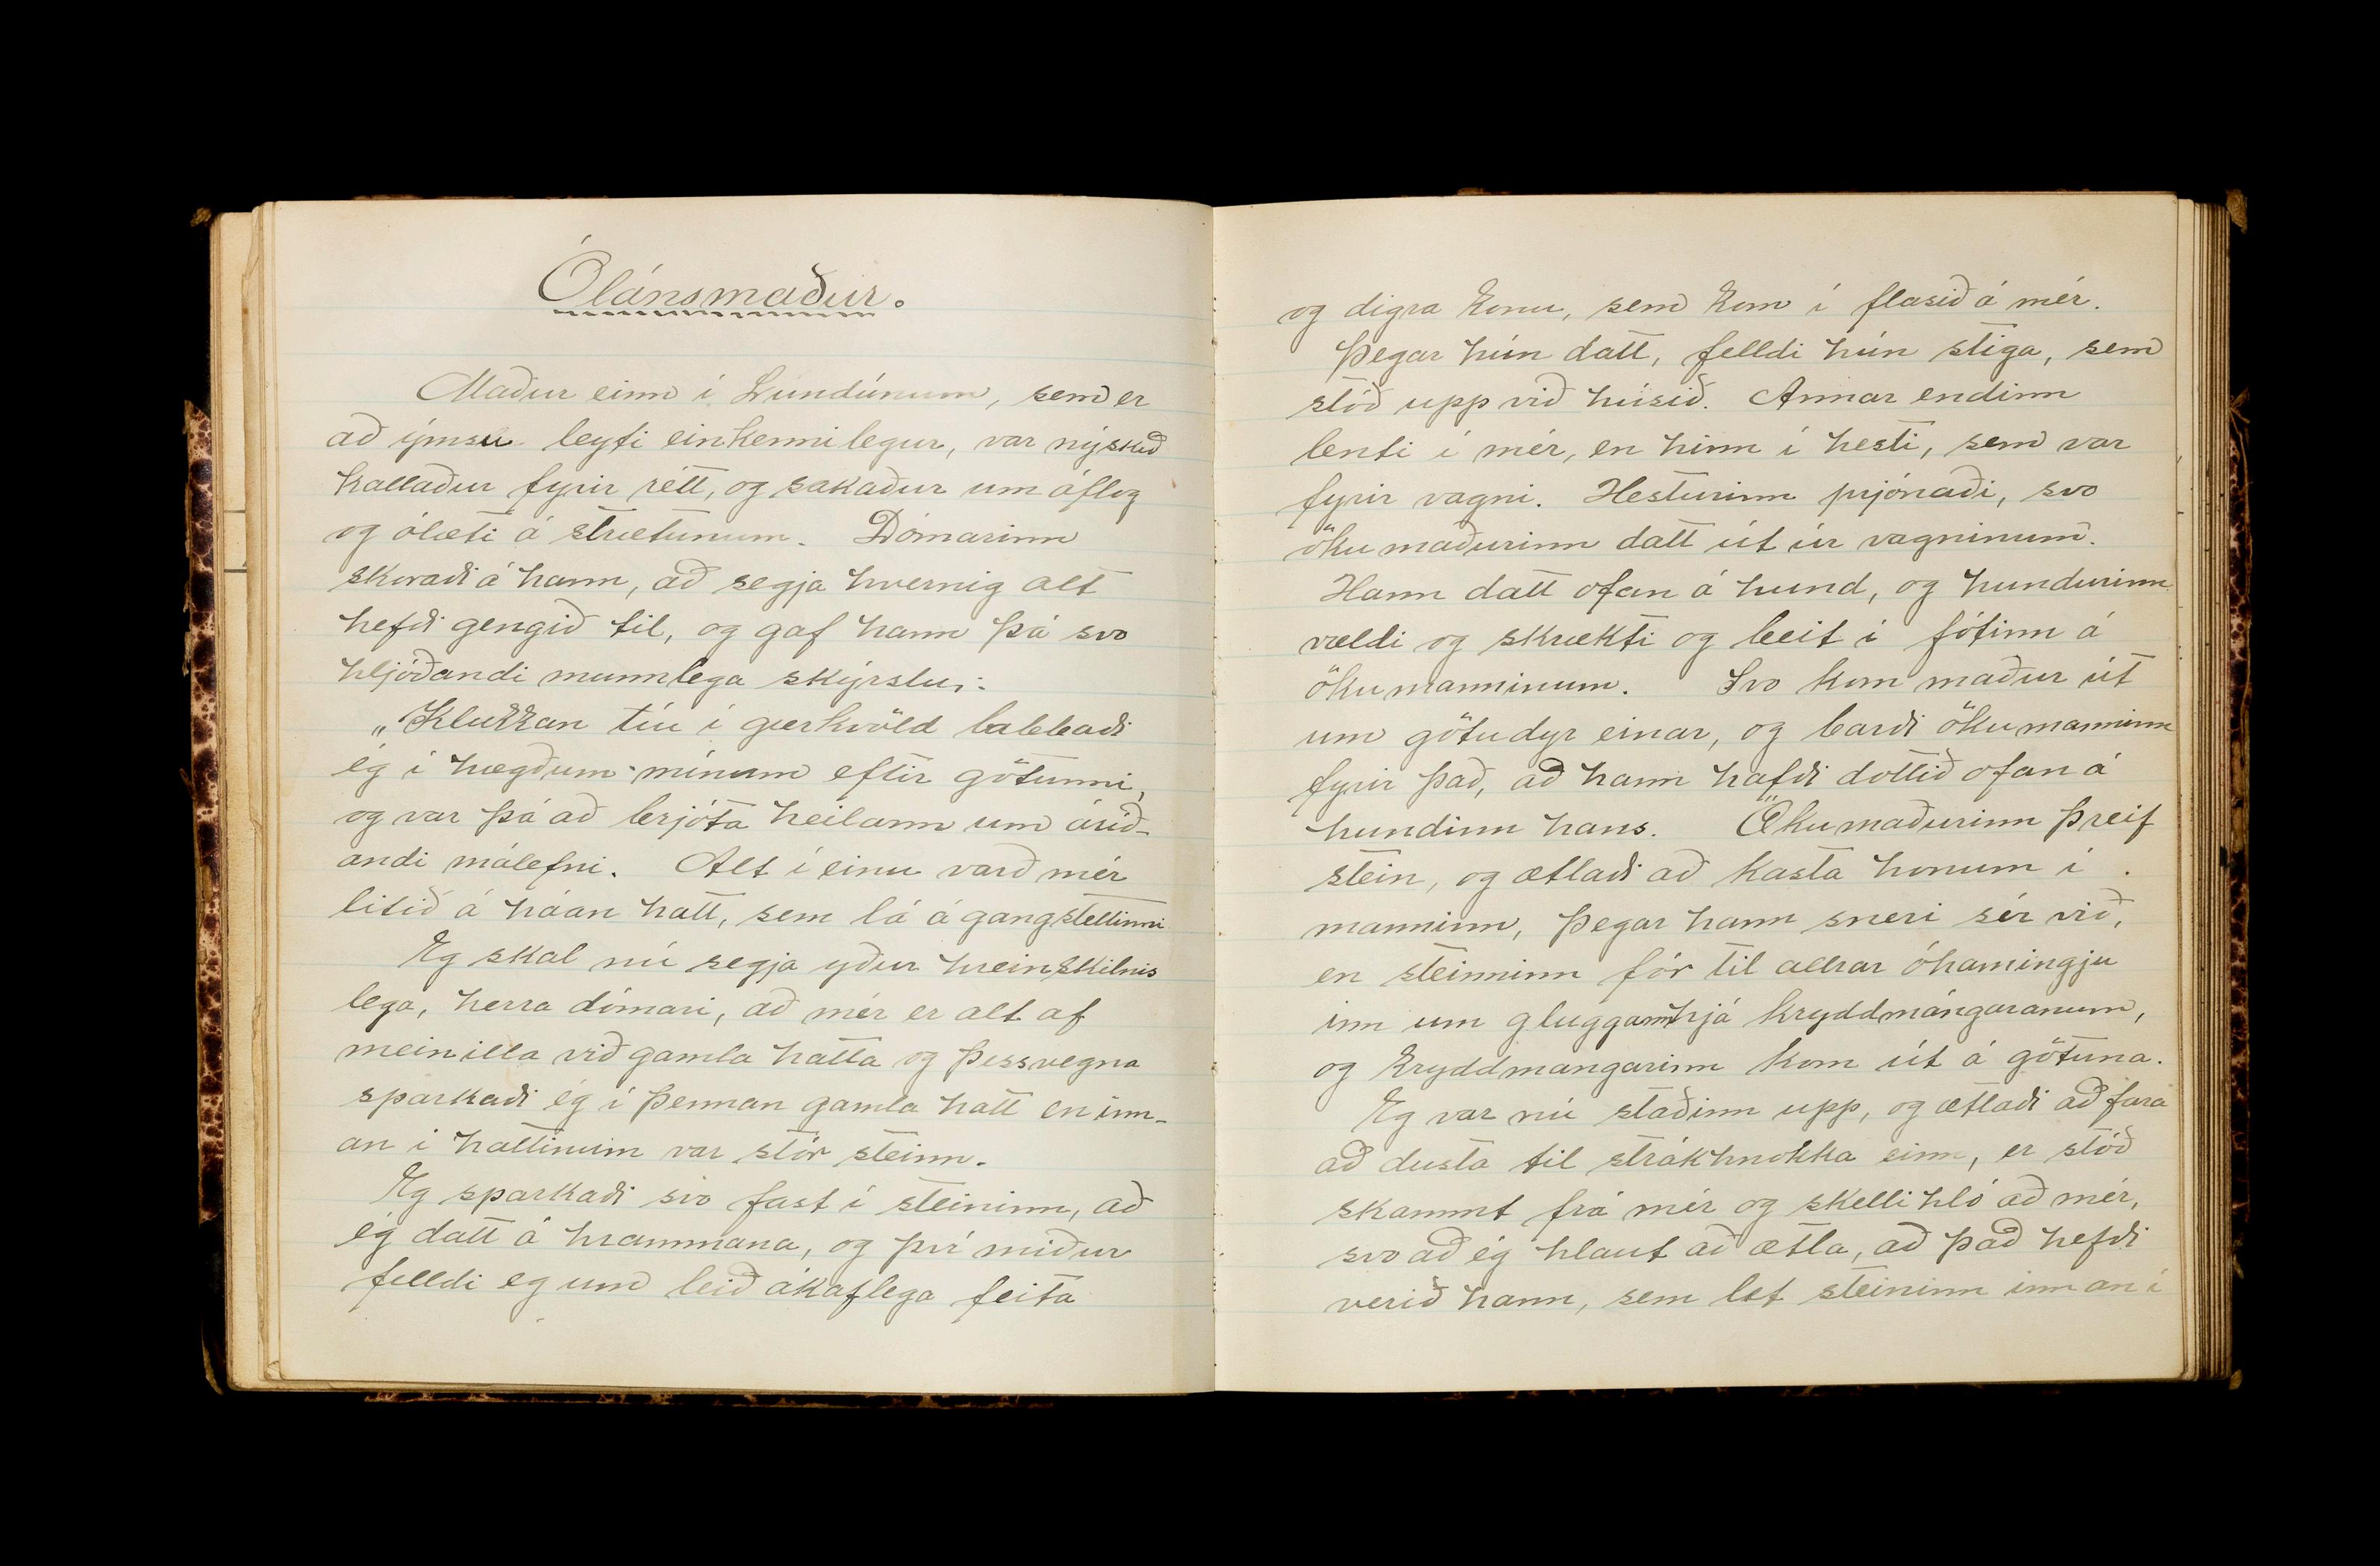 Ólánsmaður.
Maður einn í Lundúnum, sem er
að ýmsu leyti einkennilegur, var nýskeð
kallaður fyrir rétt, og sakaður um áflog
og ólæti á strætunum. Dómarinn
skoraði á hann, að segja hvernig alt
hefði gengið til, og gaf hann þá svo
hljóðandi munnlega skýrslu:
„Klukkan tíu í gærkvöld labbaði
ég í hægðum mínum eftir götunni,
og var þá að brjóta heilann um áríð-
andi málefni. Alt í einu varð mér
litið á háan hatt, sem lá á gangstéttinni
Eg skal nú segja yður hreinskilnis
lega, herra dómari, að mér er alt af
meinilla við gamla hatta og þessvegna
sparkaði ég í þennan gamla hatt en inn-
an í hattinum var stór steinn.
Eg sparkaði svo fast í steininn, að
ég datt á hrammana, og því miður
felldi eg um leið ákaflega feita
og digra konu, sem kom í flasið á mér.
Þegar hún datt, felldi hún stiga, sem
stóð upp við húsið. Annar endinn
lenti í mér, en hinn í hesti, sem var
fyrir vagni. Hesturinn prjónaði, svo
ökumaðurinn datt út úr vagninum.
Hann datt ofan á hund, og hundurinn
vældi og skrækti og beit í fótinn á
ökumanninum. Svo kom maður út
um götudyr einar, og barði ökumanninn
fyrir það, að hann hafði dottið ofan á
hundinn hans. Ökumaðurinn þreif
stein, og ætlaði að kasta honum í
manninn, þegar hann sneri sér við,
en steinninn fór til allrar óhamingju
inn um gluggann hjá kryddmángaranum,
og kryddmangarinn kom út á götuna.
Eg var nú staðinn upp, og ætlaði að fara
að dusta til strákhnokka einn, er stóð
skammt frá mér og skellihló að mér,
svo að ég hlaut að ætla, að það hefði
verið hann, sem let steininn innan í